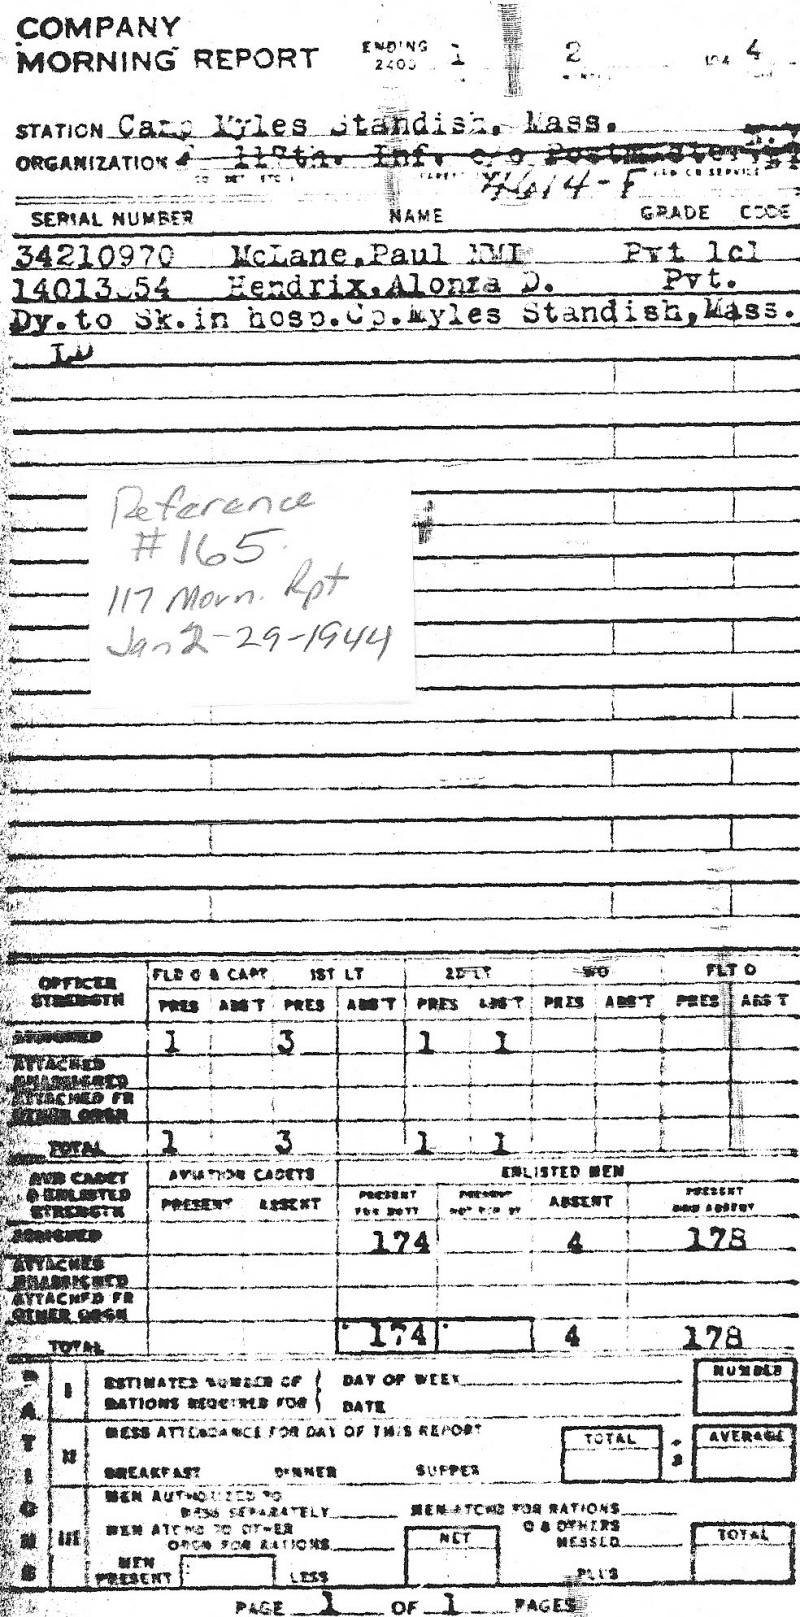 COMPANY
MORNING REPORT ENDING 2400 1 2 194 4
STATION Camp Myles Standish, Mass.
ORGANIZATION 117th. Inf. c/o Postmaster,
4614-F
SERIAL NUMBER NAME GRADE CODE
34210970 McLane,Paul NMI Pvt 1cl
Hendrix,Alonza D. Pvt.
Dy.to Sk.in hosp.Cp.Myles Standish,Mass.
LD
Reference
#165
117 Morn. Rpt
Jan 2-29-1944
OFFICER STRENGTH FLD O & CAPT 1ST LT 2D LT WO FLT O
PRES ABS'T PRES ABS'T PRES ABS'T PRES ABS'T PRES ABS'T
ASSIGNED 1 3 1 1
ATTACHED UNASSIGNED
ATTACHED FR OTHER ORGN
TOTAL 1 3 1 1
AVN CADET & ENLISTED STRENGTH AVIATION CADETS ENLISTED MEN
PRESENT ABSENT PRESENT FOR DUTY PRESENT NOT FOR DY ABSENT PRESENT AND ABSENT
ASSIGNED 174 4 178
ATTACHED UNASSIGNED
ATTACHED FR OTHER ORGN
TOTAL 174 4 178
RATIONS
I ESTIMATED NUMBER OF RATIONS REQUIRED FOR DAY OF WEEK NUMBER
DATE
II MESS ATTENDANCE FOR DAY OF THIS REPORT TOTAL ÷3 AVERAGE
BREAKFAST DINNER SUPPER
III MEN AUTHORIZED TO MESS SEPARATELY MEN ATCHD FOR RATIONS
MEN ATCHD TO OTHER ORGN FOR RATIONS NET O & OTHERS MESSED TOTAL
MEN PRESENT LESS PLUS
PAGE 1 OF 1 PAGES